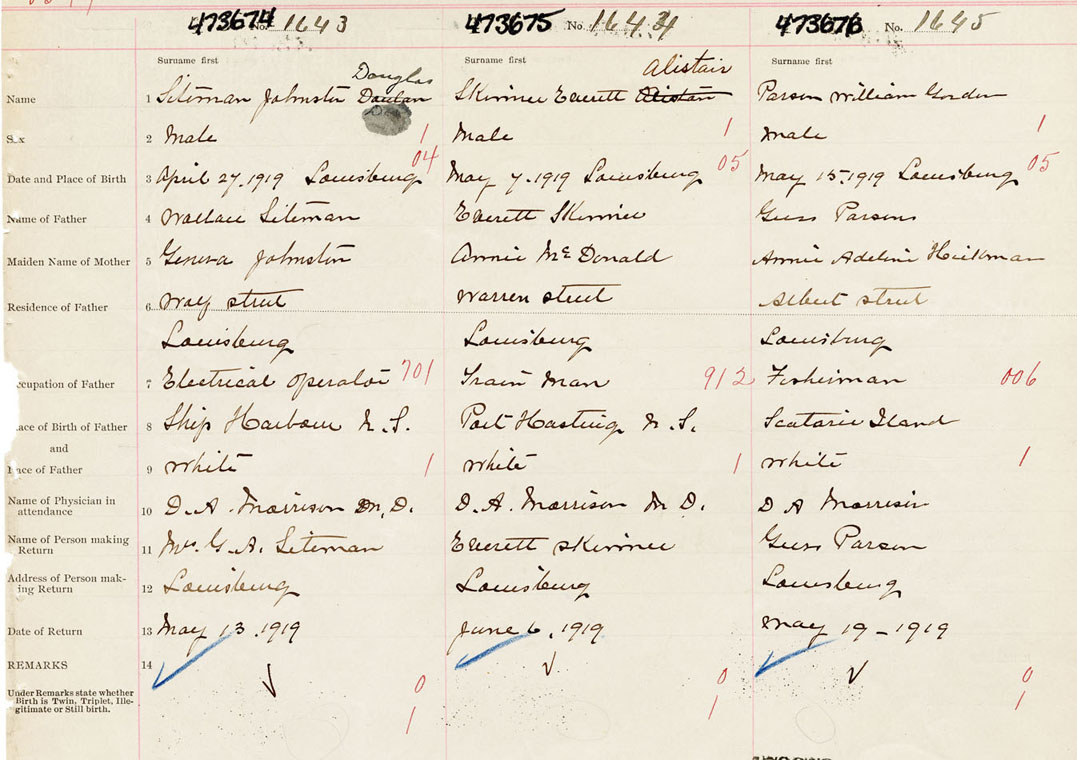 473674 No. 1643 473675 No. 1644 473676 No. 1645
Surname first Surname first Surname first
Douglas Alistair
Name 1 Siteman Johnston Skinner Everett Alistair Parson William Gordon
Sex 2 Male 1 Male 1 Male 1
04 05 05
Date and Place of Birth 3 April 27, 1919 Louisburg May 7, 1919 Louisburg May 15, 1919 Louisburg
Name of Father 4 Wallace Siteman Everett Skinner Guss Parsons
Maiden Name of Mother 5 Geneva Johnston Annie McDonald Annie Adeline Hickman
Residence of Father 6 Wolf street Warren street Albert street
Louisburg Louisburg Louisburg
Occupation of Father 7 Electrical operator 701 Train Man 912 Fisherman 006
Place of Birth of Father 8 Ship Harbour N.S. Port Hasting N.S. Scatarie Iland
and
Race of Father 9 White 1 White 1 White 1
Name of Physician in
attendance 10 D.A. Morrison M.D. D.A. Morrison M D. D A Morrison
Name of Person making
Return 11 Mrs. G.A. Siteman Everett Skinner Guss Parson
Address of Person mak-
ing Return 12 Louisburg Louisburg Louisburg
Date of Return 13 May 13, 1919 June 6, 1919 May 19-1919
REMARKS 14
0 0 0
Under Remarks state whether
Birth is Twin, Triplet, Ille-
gitimate or Still birth.
1 1 1